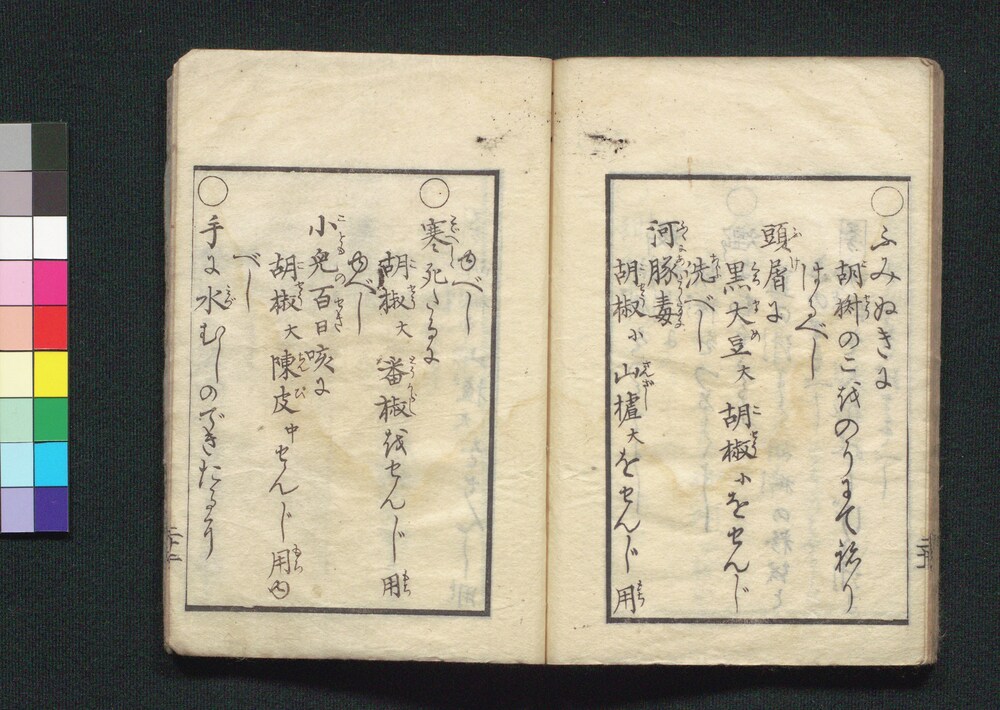 ふみぬきに
胡椒のこをのりにて祢り
はるべし
頭屑に
黒大豆大胡椒小をせんじ
洗べし
河豚毒
胡椒小山樝大をせんじ用
ゆべし
寒死たるに
胡椒大番椒をせんじ用
ゆべし
小児百日咳に
胡椒大陳皮中せんじ用ゆ
べし
手に水むしのできたるに